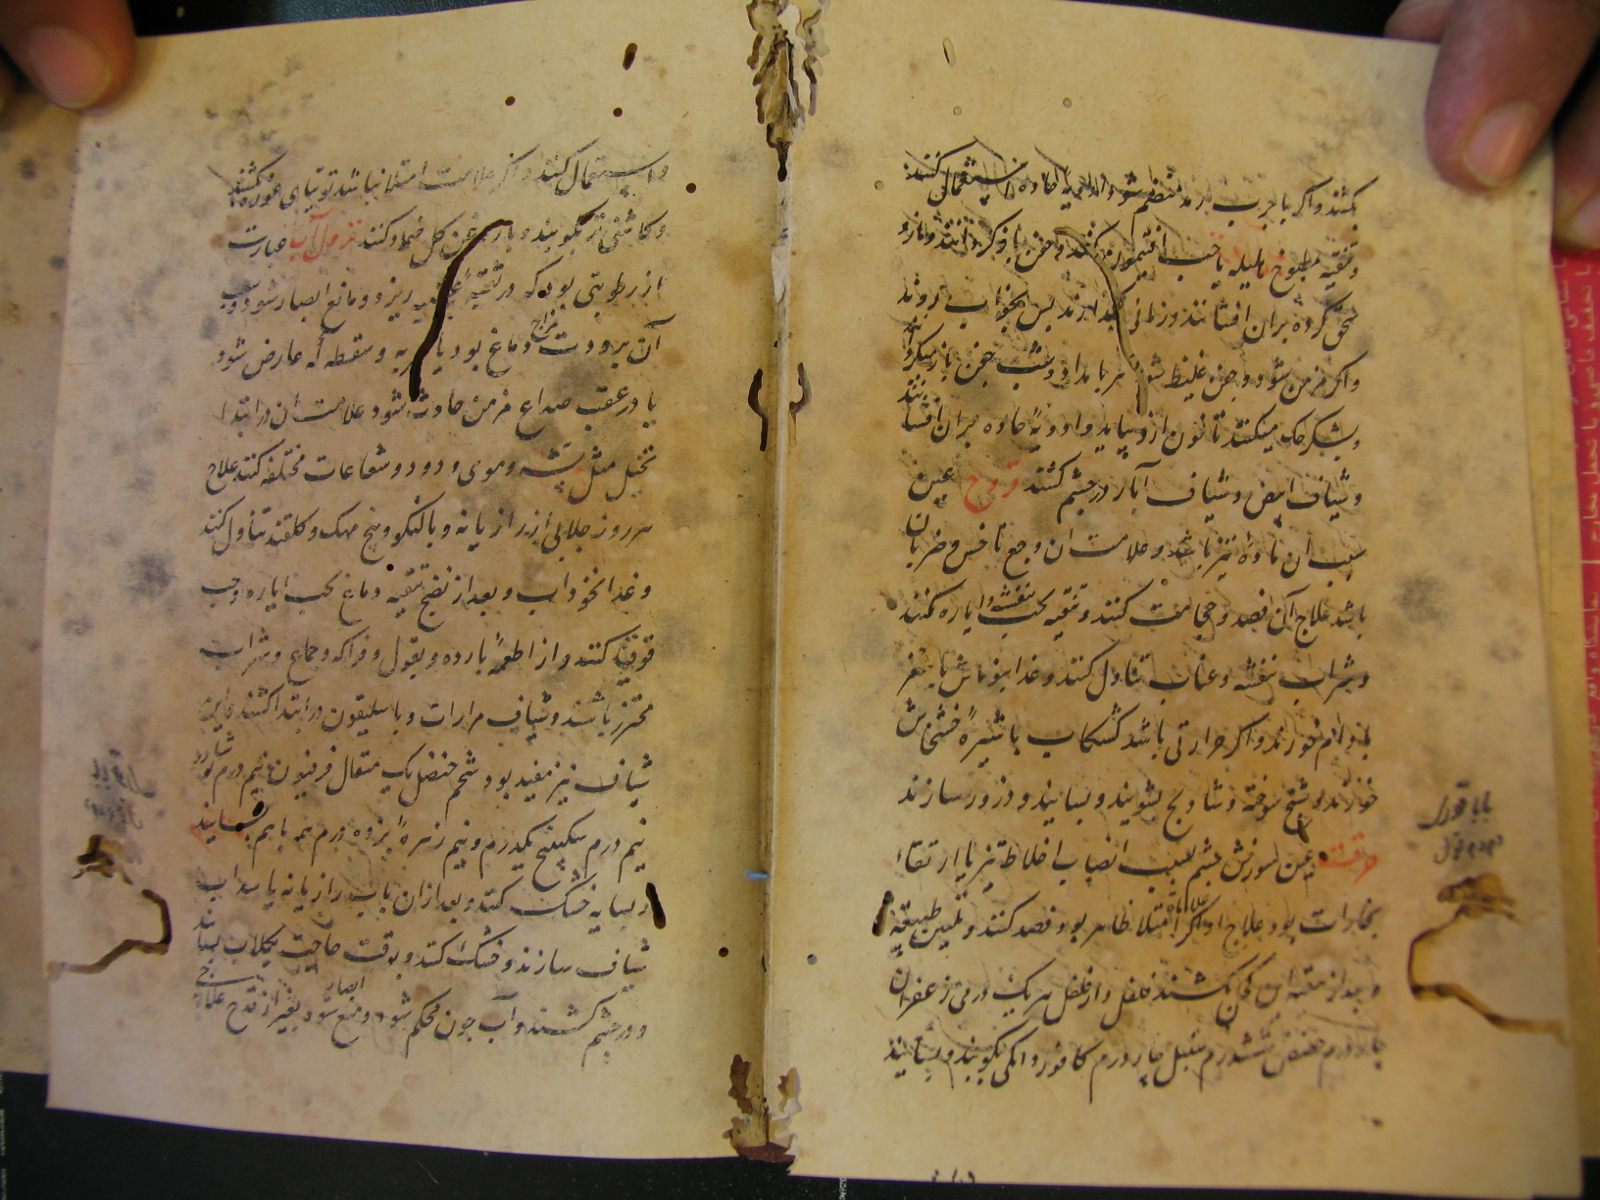 بکشند و اکر با جرب بارند منضم شود ادویه حاده استعمال کنند
و تنقیه بمطبوخ هلیله یا حب افتیمون کنند و جفن باز کردانند و مازو
سحق کرده بران افشانند و زمانی بگذارند پس بخواب روند
و اکر مزمن شود و جفن غلیظ شود هر بامداد و شب جفن باز میکرد
و بشکر حک میکنند تا خون ازو بیاید و ادویهٔ حاده بران افشانند
و شیاف ابیض و شیاف آبار در چشم کشند قروح عین
سبب آن مادهٔ تیز باشد و علامت آن وجع ناخس و ضربان
باشد علاج آن فصد و حجامت کنند و تنقیه بحب بنفشه و ایاره کنند
و شراب بنفشه و عناب تناول کنند و غذا بنوماش با مغز
بادام خورند و اکر حرارتی باشد کشکاب با شیرهٔ خشخاش
خورند و شیح سوخته و شادنج بشویند و بسایند و ذرور سازند
حرقت عین سوزش چشم بسبب انصباب اخلاط تیز یا ارتقاء
بخارات بود علاج او اکر علامات امتلا ظاهر بود فصد کنند و تلیین طبیعة
و بعد از تنقیه این کحل بکشند فلفل و دارفلفل هر یک درمی زعفران
چار درم حضض ششدرم سنبل چار درم کافور دانکی بکوبند و بسایند
بابا قوری
و استعمال کنند و اکر علامت امتلا نباشد توتیای غوره کشند
و کاشنی تر بکوبند و با روغن کل ضماد کنند نزول آب عبارت
از رطوبتی بود که در ثقبهٔ عنبیه ریزد و مانع ابصار شود و سبب
آن برودت مزاج دماغ بود یا ضربه و سقطه که عارض شود
یا در عقب صداع مزمن حادث شود علامت آن در ابتدا
تخیل مثل پشه و موی و دود و شعاعات مختلفه کنند علاج
هر روز جلابی از رازیانه و بالنکو و بیخ مهک و کلقند تناول کنند
و غذا نخوداب و بعد از نضج تنقیه دماغ بحب ایاره و حب
قوقایا کنند و از اطعمهٔ بارده و بقول و فواکه و جماع و شراب
محترز باشند و شیاف مرارات و باسلیقون در ابتدا کشند و این
شیاف نیز مفید بود شحم حنظل یک مثقال فرفیون نیم درم نوشادر
نیم درم سکبینج یکدرم و نیم زهرهٔ بز ده درم همه با هم بسایند
و بسایه خشک کنند و بعد از آن بآب رازیانه یا سداب
شیاف سازند و خشک کنند و بوقت حاجت بکلاب بسایند
و در چشم کشند و آب چون محکم شود و منع ابصار شود بغیر از قدح علاجی